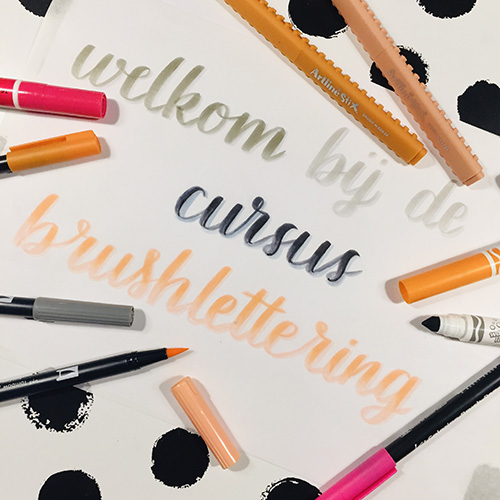 welkom bij de
cursus
brushlettering
Artline Stix